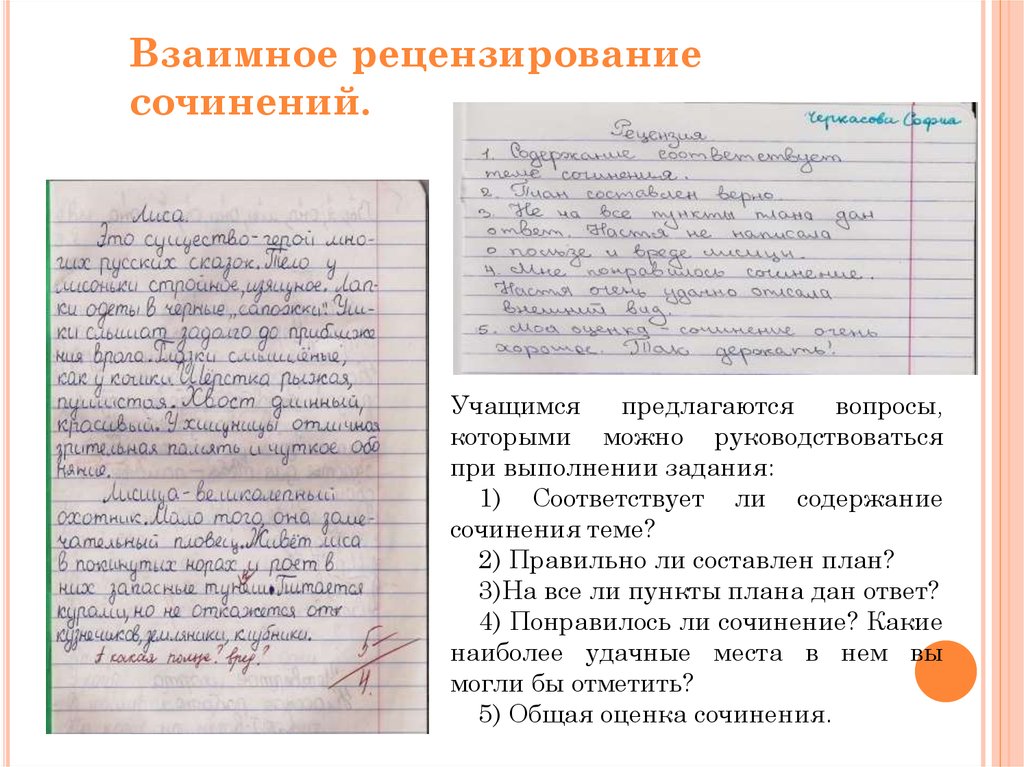 Взаимное рецензирование
сочинений.
Лиса.
Это существо-герой мно-
гих русских сказок. Тело у
лисоньки стройное, изящное. Лап-
ки одеты в чёрные „сапожки". Уш-
ки слышат задолго до приближе
ния врага. Глазки смышлёные,
как у кошки. Шёрстка рыжая,
пушистая. Хвост длинный,
красивый. У хищницы отличная
зрительная память и чуткое обо
няние.
Лисица-великолепный
охотник. Мало того, она заме-
чательный пловец. Живёт лиса
в покинутых норах и роет в
них запасные
курами, но не откажется от
кузнечиков, земляники, клубники.
А какая польза? вред?
5
4.
Черкасова София
Рецензия
1. Содержание соответствует
теме сочинения.
2. План составлен верно.
3. Не на все пункты плана дан
ответ. Настя не написала
о пользе и вреде лисицы.
4. Мне понравилось сочинение.
Настя очень удачно описала
внешний вид.
5. Моя оценка - сочинение очень
хорошое. Так держать!
Учащимся предлагаются вопросы,
которыми можно руководствоваться
при выполнении задания:
1) Соответствует ли содержание
сочинения теме?
2) Правильно ли составлен план?
3)На все ли пункты плана дан ответ?
4) Понравилось ли сочинение? Какие
наиболее удачные места в нем вы
могли бы отметить?
5) Общая оценка сочинения.